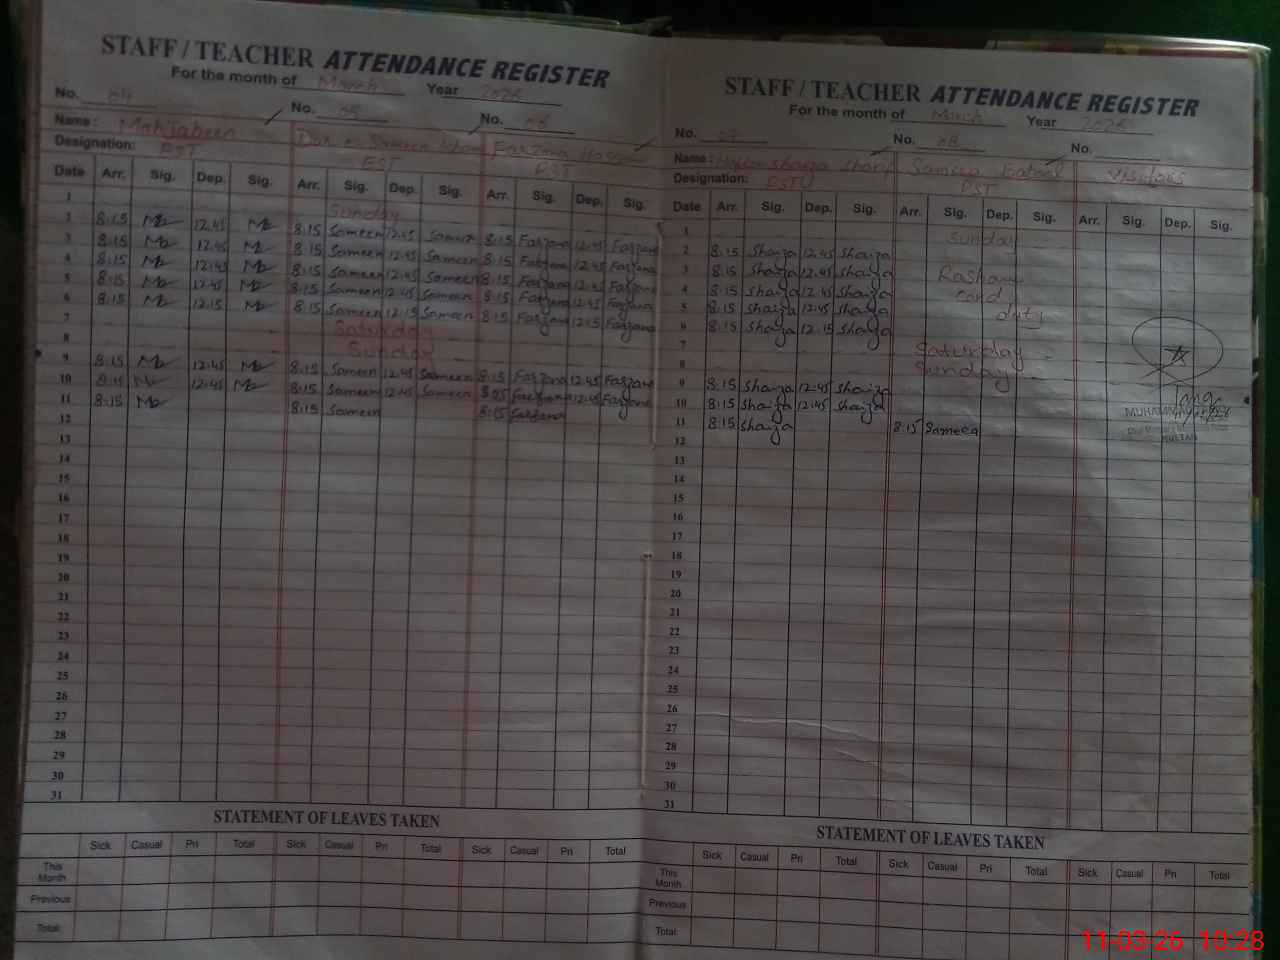 STAFF / TEACHER ATTENDANCE REGISTER
For the month of March Year 2026
No. 04 No. 05 No. 06
Name: Mahjabeen Farzana
Designation: EST EST PST
Date Arr. Sig. Dep. Sig. Arr. Sig. Dep. Sig. Arr. Sig. Dep. Sig.
1 Sunday
2 8:15 12:45 8:15 Sameen 12:45 Sameen 8:15 Farzana 12:45 Farzana
3 8:15 12:45 8:15 Sameen 12:45 Sameen 8:15 Farzana 12:45 Farzana
4 8:15 12:45 8:15 Sameen 12:45 Sameen 8:15 Farzana 12:45 Farzana
5 8:15 12:45 8:15 Sameen 12:45 Sameen 8:15 Farzana 12:45 Farzana
6 8:15 12:15 8:15 Sameen 12:15 Sameen 8:15 Farzana 12:15 Farzana
7 Saturday
8 Sunday
9 8:15 12:45 8:15 Sameen 12:45 Sameen 8:15 Farzana 12:45 Farzana
10 12:45 8:15 Sameen 12:45 Sameen Farzana 12:45 Farzana
11 8:15 8:15 Sameen 8:15 Farzana
12
13
14
15
16
17
18
19
20
21
22
23
24
25
26
27
28
29
30
31
STATEMENT OF LEAVES TAKEN
Sick Casual Pri Total Sick Casual Pri Total Sick Casual Pri Total
This Month
Previous
Total:
STAFF / TEACHER ATTENDANCE REGISTER
For the month of March Year 2026
No. 07 No. 08 No.
Name: Shaiza Sharif Sameea Batool Visitors
Designation: PST
Date Arr. Sig. Dep. Sig. Arr. Sig. Dep. Sig. Arr. Sig. Dep. Sig.
1 Sunday
2 8:15 Shaiza 12:45 Shaiza
3 8:15 Shaiza 12:45 Shaiza Rashan
4 8:15 Shaiza 12:45 Shaiza card
5 8:15 Shaiza 12:45 Shaiza duty
6 8:15 Shaiza 12:15 Shaiza
7 Saturday
8 Sunday
9 8:15 Shaiza 12:45 Shaiza
10 8:15 Shaiza 12:45 Shaiza
11 8:15 Shaiza 8:15 Sameea
MUHAMMAD
MULTAN
12
13
14
15
16
17
18
19
20
21
22
23
24
25
26
27
28
29
30
31
STATEMENT OF LEAVES TAKEN
Sick Casual Pri Total Sick Casual Pri Total Sick Casual Pri Total
This Month
Previous
Total:
11-03-26 10:28